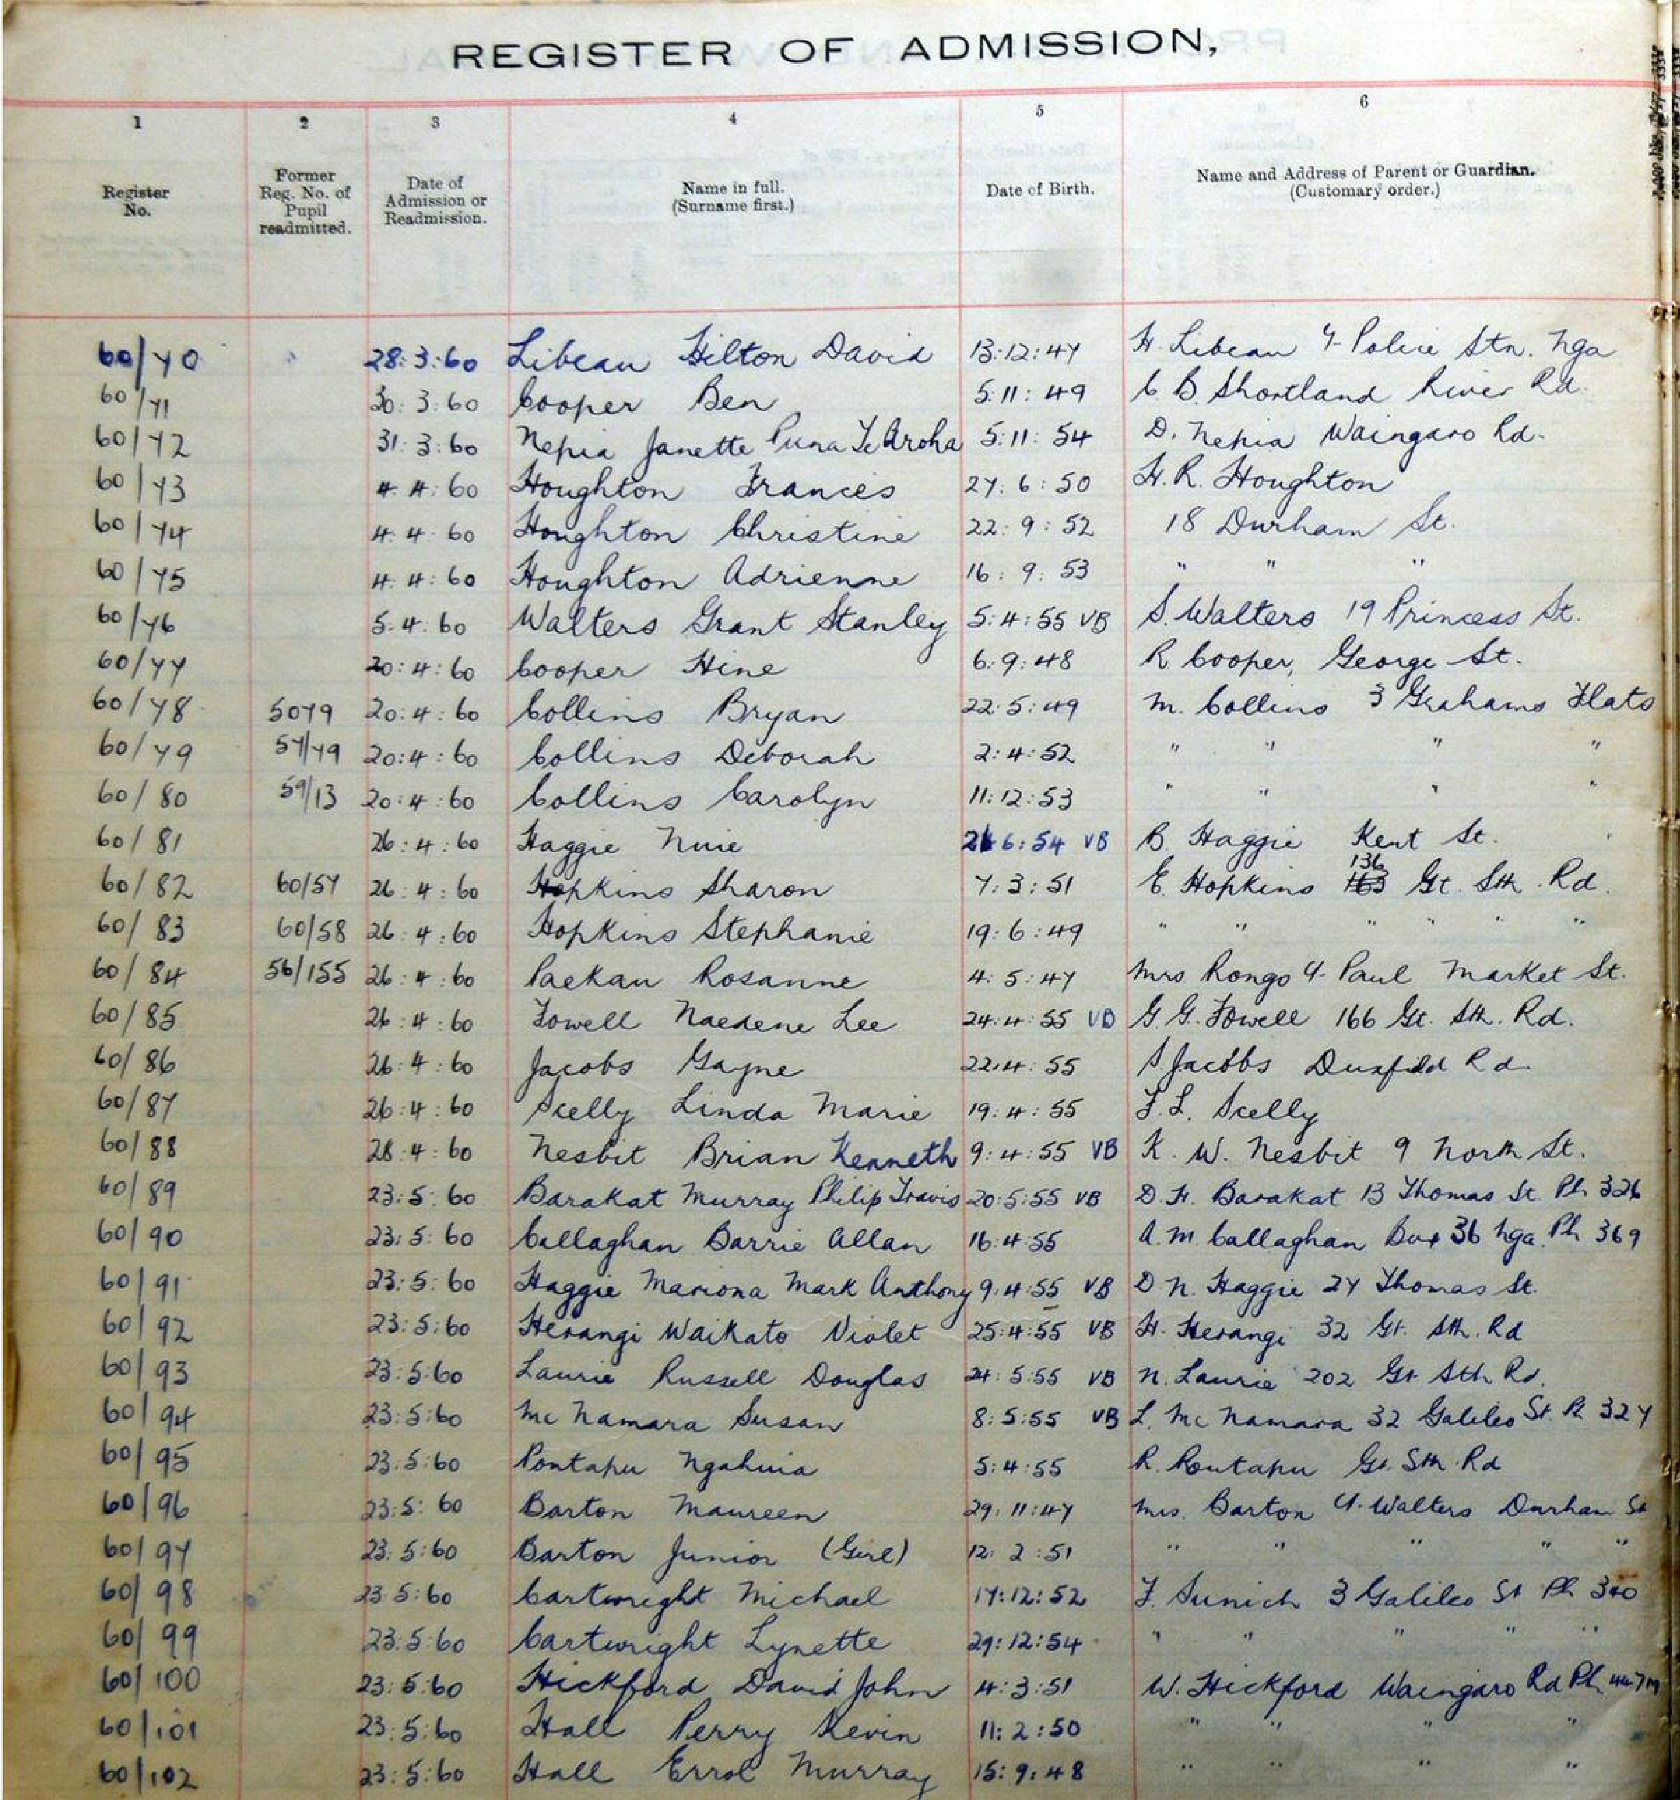 REGISTER OF ADMISSION,
1 2 3 4 5 6
Register No. Former Reg. No. of Pupil readmitted. Date of Admission or Readmission. Name in full. (Surname first.) Date of Birth. Name and Address of Parent or Guardian. (Customary order.)
60/70 28:3:60 Libeau Hilton David 13:12:47 H. Libeau Police Stn. Nga
60/71 30:3:60 Cooper Ben 5:11:49 C B. Shortland River Rd.
60/72 31:3:60 Nepia Janette Puna Te Aroha 5:11:54 D. Nepia Waingaro Rd.
60/73 4:4:60 Houghton Frances 27:6:50 H. R. Houghton
60/74 4:4:60 Houghton Christine 22:9:52 18 Durham St.
60/75 4:4:60 Houghton Adrienne 16:9:53 " " "
60/76 5:4:60 Walters Grant Stanley 5:4:55 VB S. Walters 19 Princess St.
60/77 20:4:60 Cooper Hine 6:9:48 R Cooper, George St.
60/78 5079 20:4:60 Collins Bryan 22:5:49 M. Collins 3 Grahams Flats
60/79 57/79 20:4:60 Collins Deborah 2:4:52 " " " "
60/80 59/13 20:4:60 Collins Carolyn 11:12:53 " " " "
60/81 26:4:60 Haggie 6:54 VB B. Haggie Kent St.
60/82 60/57 26:4:60 Hopkins Sharon 7:3:51 E. Hopkins 136 163 Gt. Sth. Rd.
60/83 60/58 26:4:60 Hopkins Stephanie 19:6:49 " " " " " "
60/84 56/155 26:4:60 Paekau Rosanne 4:5:47 Mrs Rongo Paul Market St.
60/85 26:4:60 Fowell Naedene Lee 24:4:55 VB G. G. Fowell 166 Gt. Sth. Rd.
60/86 26:4:60 Jacobs Gayne 22:4:55 S Jacobs Duxfield Rd.
60/87 26:4:60 Scelly Linda Marie 19:4:55 F. L. Scelly
60/88 28:4:60 Nesbit Brian Kenneth 9:4:55 VB K. W. Nesbit 9 North St.
60/89 23:5:60 Barakat Murray Philip Travis 20:5:55 VB D. H. Barakat 13 Thomas St. Ph 326
60/90 23:5:60 Callaghan Barrie Allan 16:4:55 A. M Callaghan Box 36 Nga. Ph 369
60/91 23:5:60 Haggie Mariona Mark Anthony 9:4:55 VB D N. Haggie 27 Thomas St.
60/92 23:5:60 Herangi Waikato Violet 25:4:55 VB H. Herangi 32 Gt. Sth. Rd
60/93 23:5:60 Laurie Russell Douglas 24:5:55 VB N. Laurie 202 Gt Sth Rd.
60/94 23:5:60 Mc Namara Susan 8:5:55 VB L. Mc Namara 32 Galileo St. Ph 327
60/95 23:5:60 Pontapu Ngahuia 5:4:55 R. Poutapu Gt. Sth. Rd
60/96 23:5:60 Barton Maureen 29:11:47 Mrs. Barton Walters Durham St
60/97 23:5:60 Barton Junior (Girl) 12:2:51 " " " " "
60/98 23:5:60 Cartwright Michael 17:12:52 F. Sunich 3 Galileo St Ph 340
60/99 23:5:60 Cartwright Lynette 29:12:54 " " " " "
60/100 23:5:60 Hickford David John 4:3:51 W. Hickford Waingaro Rd Ph
60/101 23:5:60 Hall Perry Kevin 11:2:50 " " " "
60/102 23:5:60 Hall Errol Murray 15:9:48 " " " "